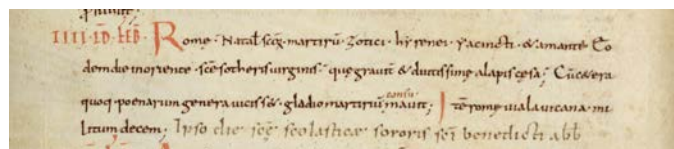 IIII·ID·FEB· Rome· Natał sc̄ꝝ martirū· Zotici· hyrenei· yacincti· & amantii· Eo
dem die in oriente· sc̄e sotheris uirginis· que grauit & diutissime alapis cęsa; Cū cętera
quoq· poenarum genera uicisset· gladio martiriū consū mauit; Itē rome uia lauicana· mi
litum decem; Ipso die sc̄ę scolasticae sororis sc̄i benedicti abb